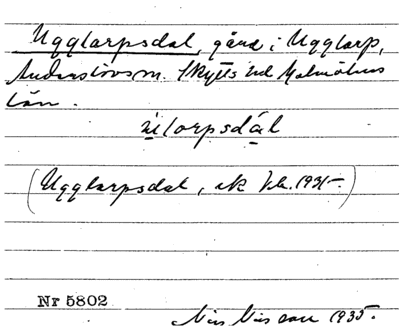 Ugglarpsdal, gård i Ugglarp,
Anderslövs sn. Skytts hd Malmöhus
län.
ùlorpsdál
(Ugglarpsdal, ek 1931.)
Nr 5802
Nils Nilsson 1935.